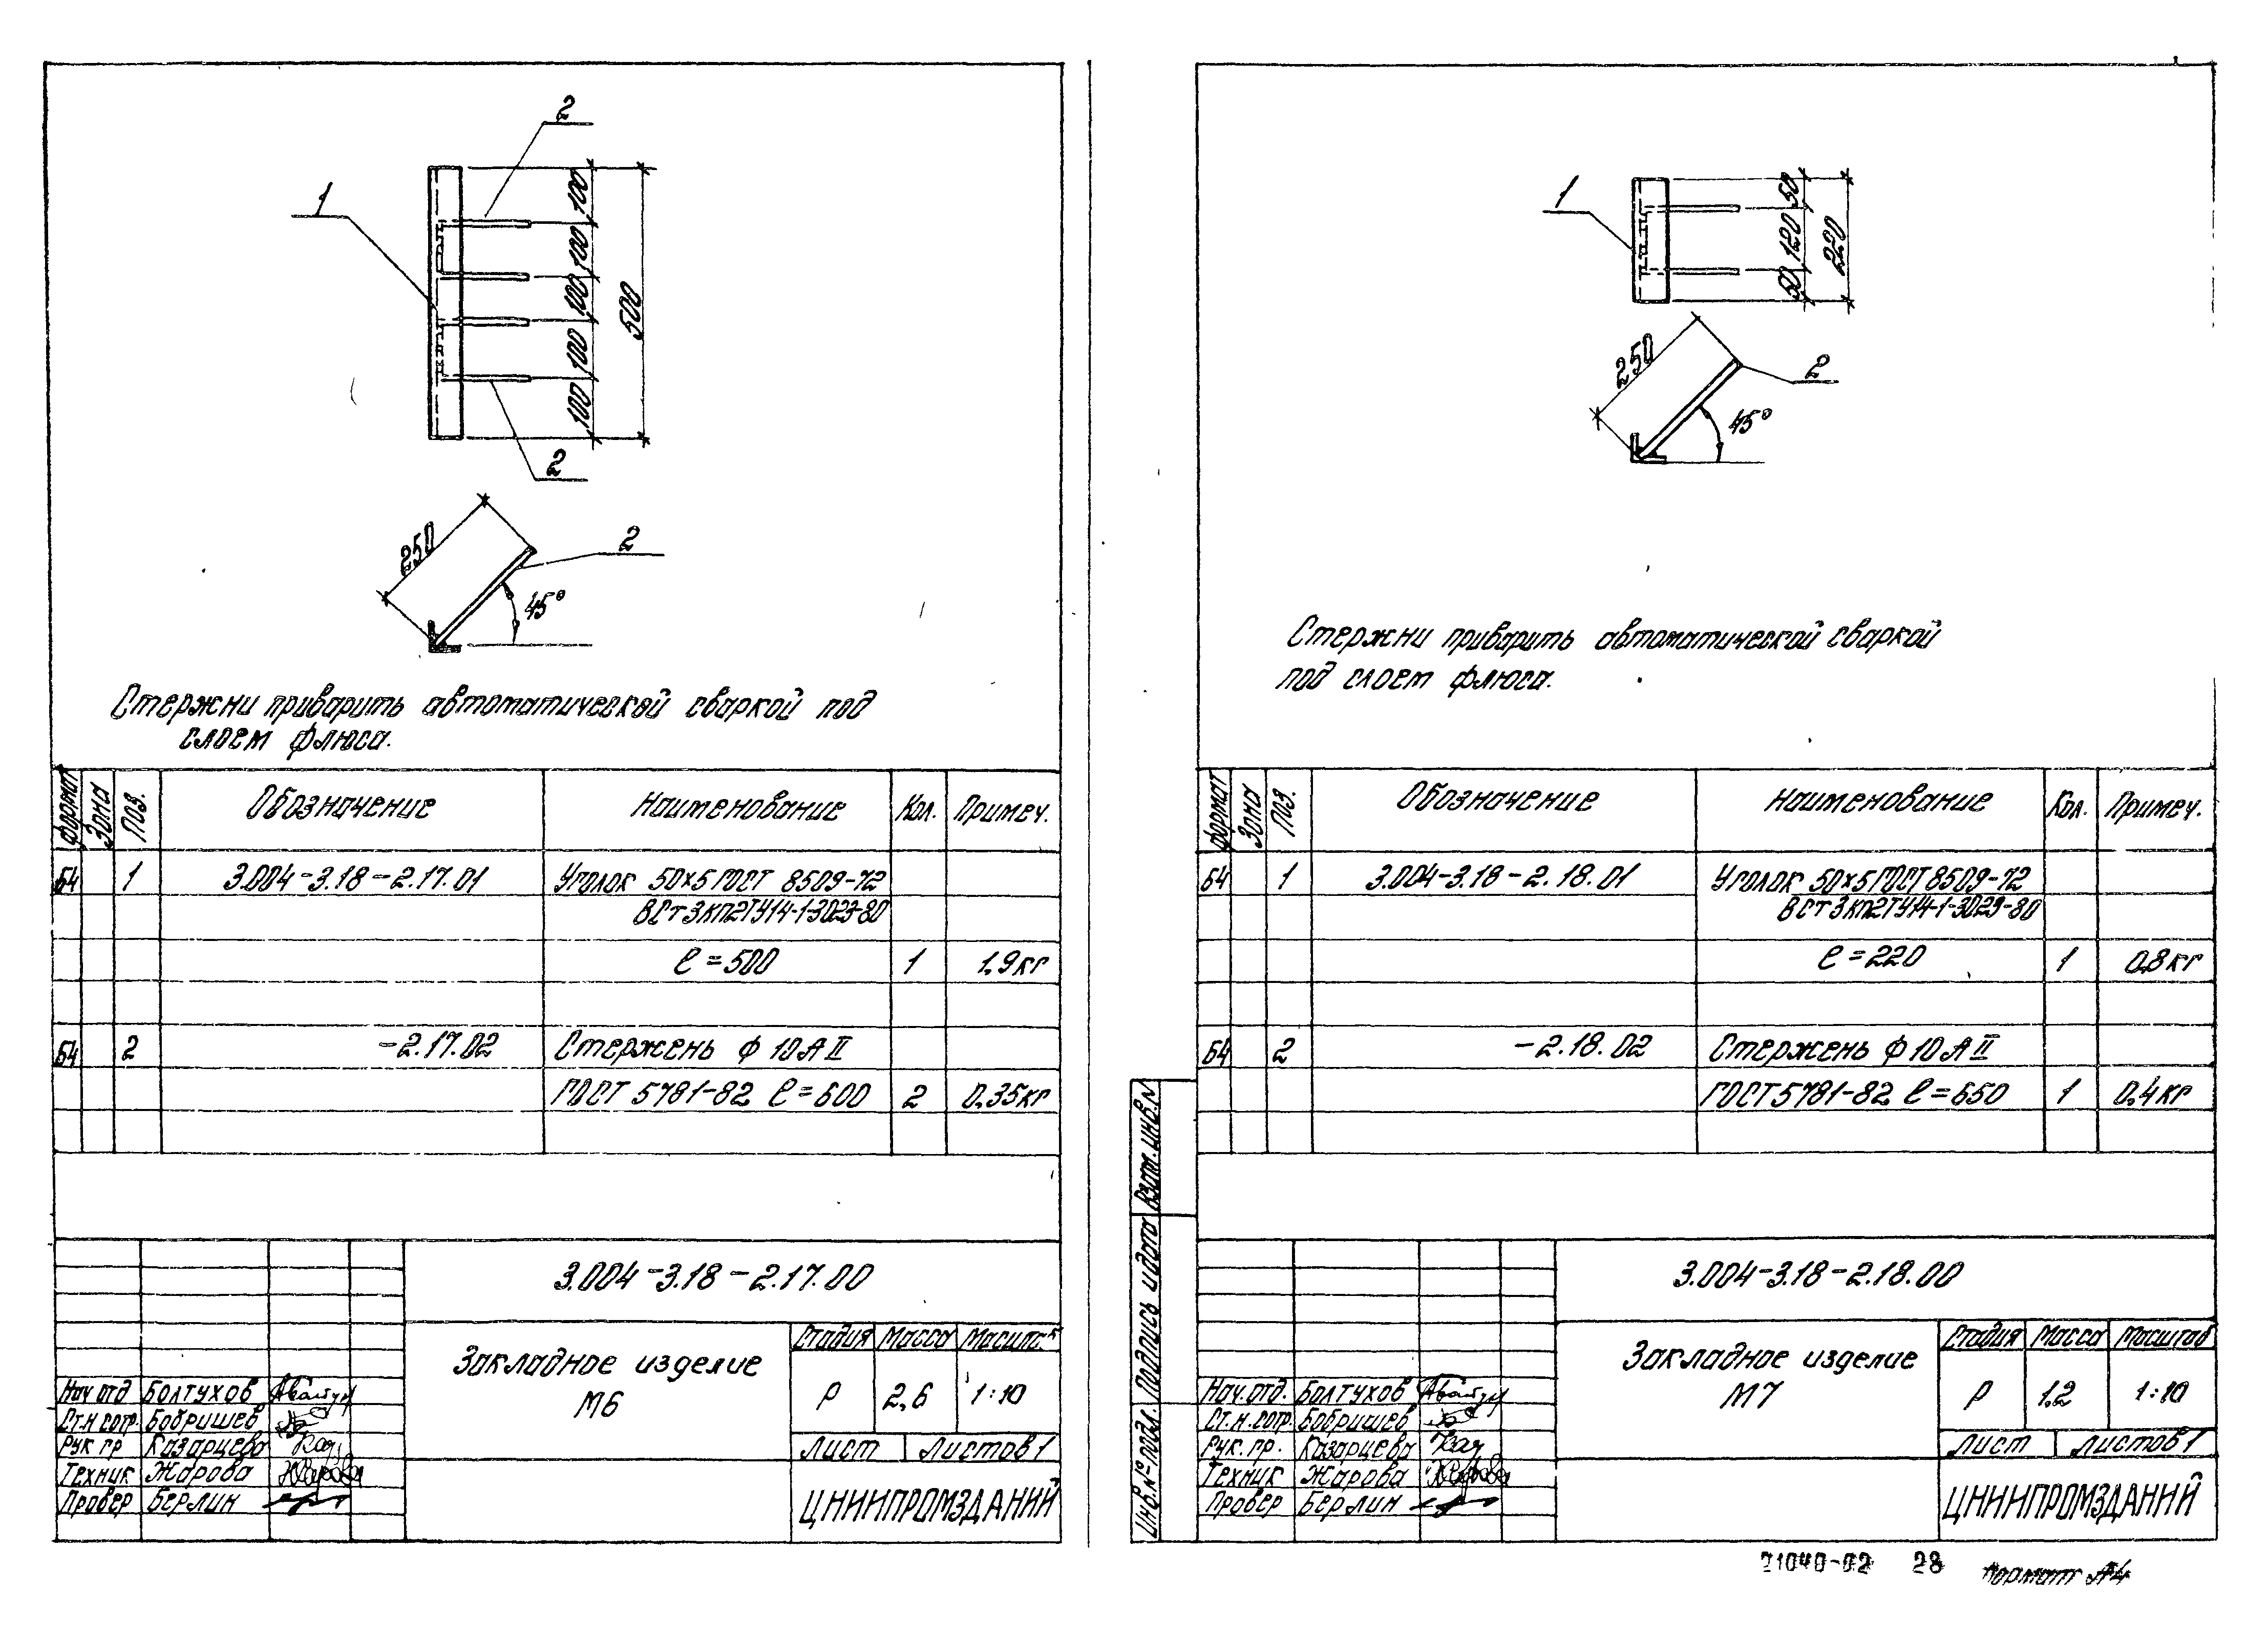 2
1
100
100
100
100
100
500
2
250
2
45°
Стержни приварить автоматической сваркой под
слоем флюса.
Формат Зона Поз. Обозначение Наименование Кол. Примеч.
Б4 1 3.004-3.18-2.17.01 Уголок 50×5 ГОСТ 8509-72
ВСт3кп2ТУ14-1-3023-80
ℓ=500 1 1.9кг
Б4 2 -2.17.02 Стержень Ф 10 А II
ГОСТ 5781-82 ℓ=600 2 0,35кг
3.004-3.18-2.17.00
Закладное изделие
М6
Стадия Масса
Р 2,6 1:10
Лист Листов 1
Нач отд Болтухов
Ст.н сотр. Бобришев
Рук гр Казарцева
Техник Жарова
Провер Берлин
ЦНИИПРОМЗДАНИЙ
1
50
120
50
220
250
2
45°
Стержни приварить автоматической сваркой
под слоем флюса.
Формат Зона Поз. Обозначение Наименование Кол. Примеч.
Б4 1 3.004-3.18-2.18.01 Уголок 50×5 ГОСТ 8509-72
ВСт3кп2ТУ14-1-3023-80
ℓ=220 1 0,8кг
Б4 2 -2.18.02 Стержень Ф 10 А II
ГОСТ 5781-82 ℓ=650 1 0,4кг
Взам.инв.N
Подпись и дата
Инв.№ подл.
3.004-3.18-2.18.00
Закладное изделие
М7
Стадия Масса Масштаб
Р 1.2 1:10
Лист Листов 1
Нач.отд. Болтухов
Ст.н.сотр. Бобришев
Рук.гр. Казарцева
Техник Жарова
Провер Берлин
ЦНИИПРОМЗДАНИЙ
21040-02 28 Формат А4